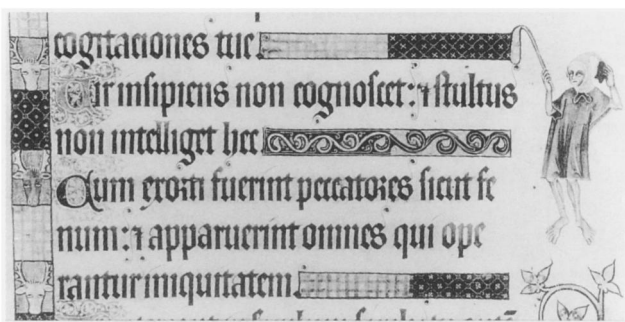 cogitaciones tue.
Vir insipiens non cognoscet: ⁊ stultus
non intelliget hec
Cum exorti fuerint peccatores sicut fe
num: ⁊ apparuerint omnes qui ope
rantur iniquitatem.